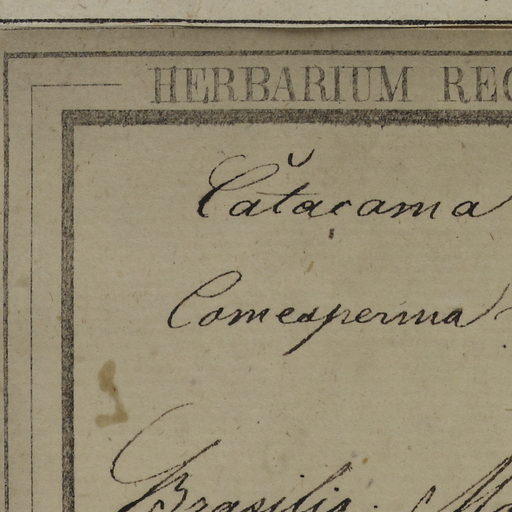 HERBARIUM REG
Catocoma
Comesperma
Brasilia. Ma